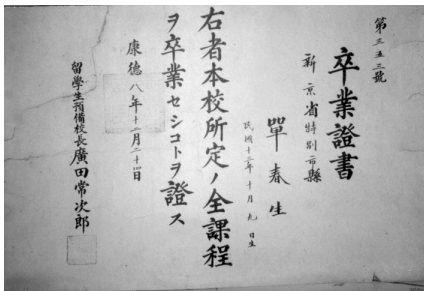 第三五三號
卒業證書
新京省特別市縣
單春生
民國十三年十月九日生
右者本校所定ノ全課程
ヲ卒業セシコトヲ證ス
康德八年十二月二十日
留學生預備校長廣田常次郎